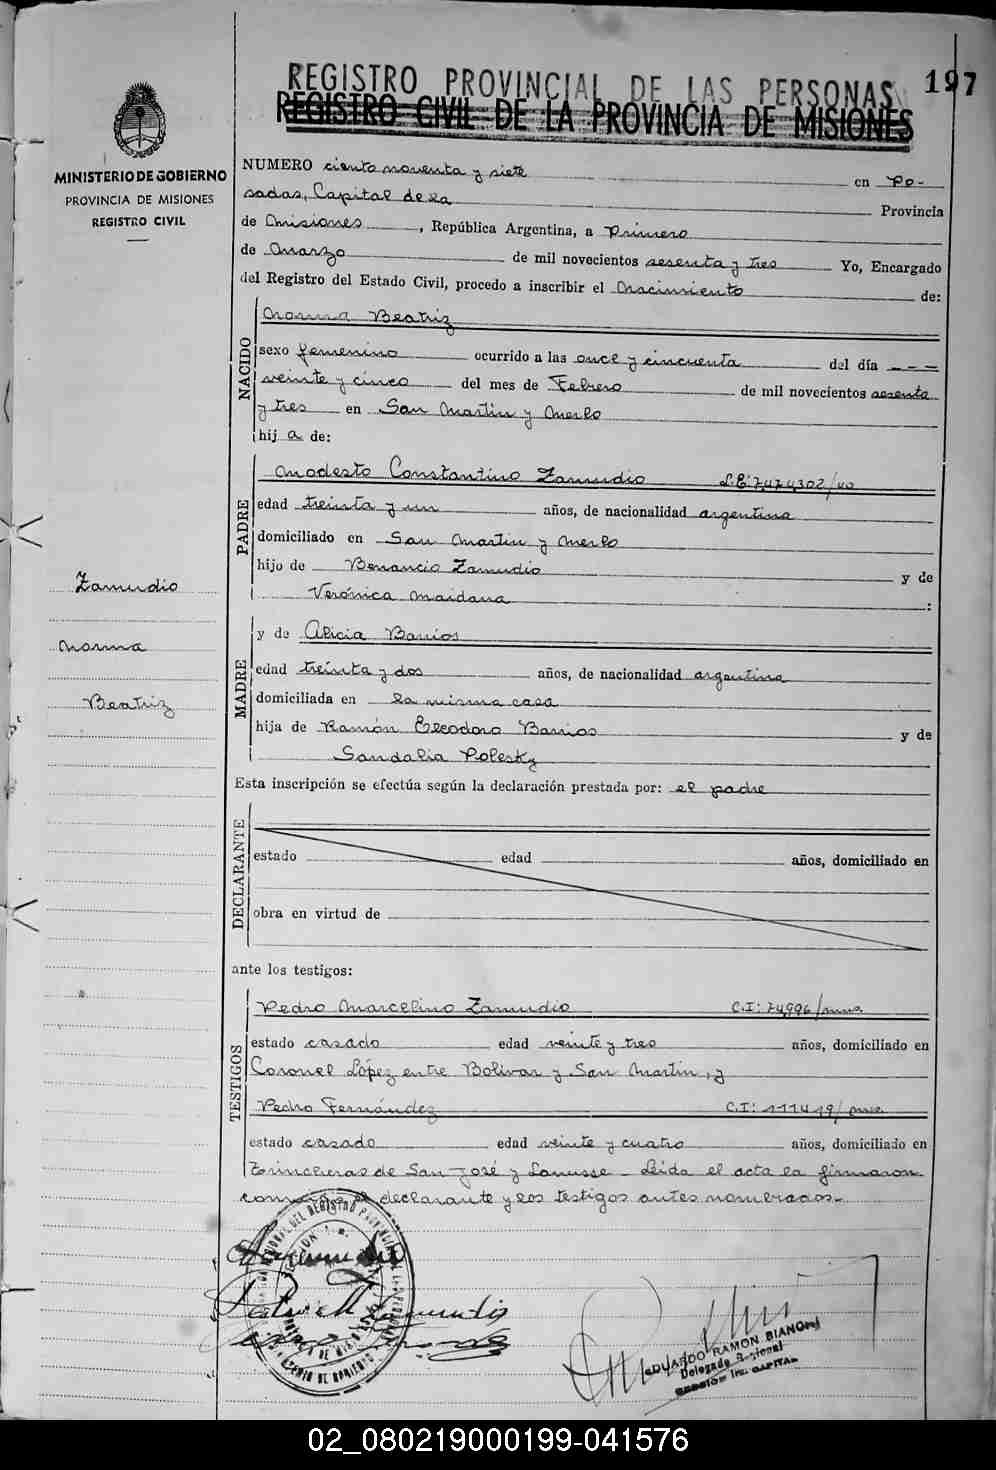 REGISTRO PROVINCIAL DE LAS PERSONAS
197
REGISTRO CIVIL DE LA PROVINCIA DE MISIONES
MINISTERIO DE GOBIERNO
PROVINCIA DE MISIONES
REGISTRO CIVIL
NUMERO ciento noventa y siete en Po-
sadas, Capital de la Provincia
de Misiones, República Argentina, a Primero
de Marzo de mil novecientos sesenta y tres Yo, Encargado
del Registro del Estado Civil, procedo a inscribir el Nacimiento de:
NACIDO
Norma Beatriz
sexo femenino ocurrido a las once y cincuenta del día
veinte y cinco del mes de Febrero de mil novecientos sesenta
y tres en San Martin y Merlo
hij a de:
PADRE
Modesto Constantino Zamudio L.E: 7.474.302/
edad treinta y un años, de nacionalidad argentina
domiciliado en San Martin y Merlo
hijo de Benancio Zamudio y de
Verónica Maidana :
Zamudio
Norma
Beatriz
MADRE
y de Alicia Barrios
edad treinta y dos años, de nacionalidad argentina
domiciliada en la misma casa
hija de Ramón Eleodoro Barrios y de
Sandalia Polesky
Esta inscripción se efectúa según la declaración prestada por: el padre
DECLARANTE
estado edad años, domiciliado en
obra en virtud de
ante los testigos:
TESTIGOS
Pedro Marcelino Zamudio C.I: 74996/mnes
estado casado edad veinte y tres años, domiciliado en
Coronel López entre Bolivar y San Martin, y
Pedro Fernández C.I: 111419/mnes
estado casado edad veinte y cuatro años, domiciliado en
Trincheras de San José y Lanusse - Leida el acta la firmaron
declarante y los testigos antes nombrados.-
EDUARDO RAMON BIANCHI
Delegado Regional
SECCIÓN 1ra. CAPITAL
02_080219000199-041576